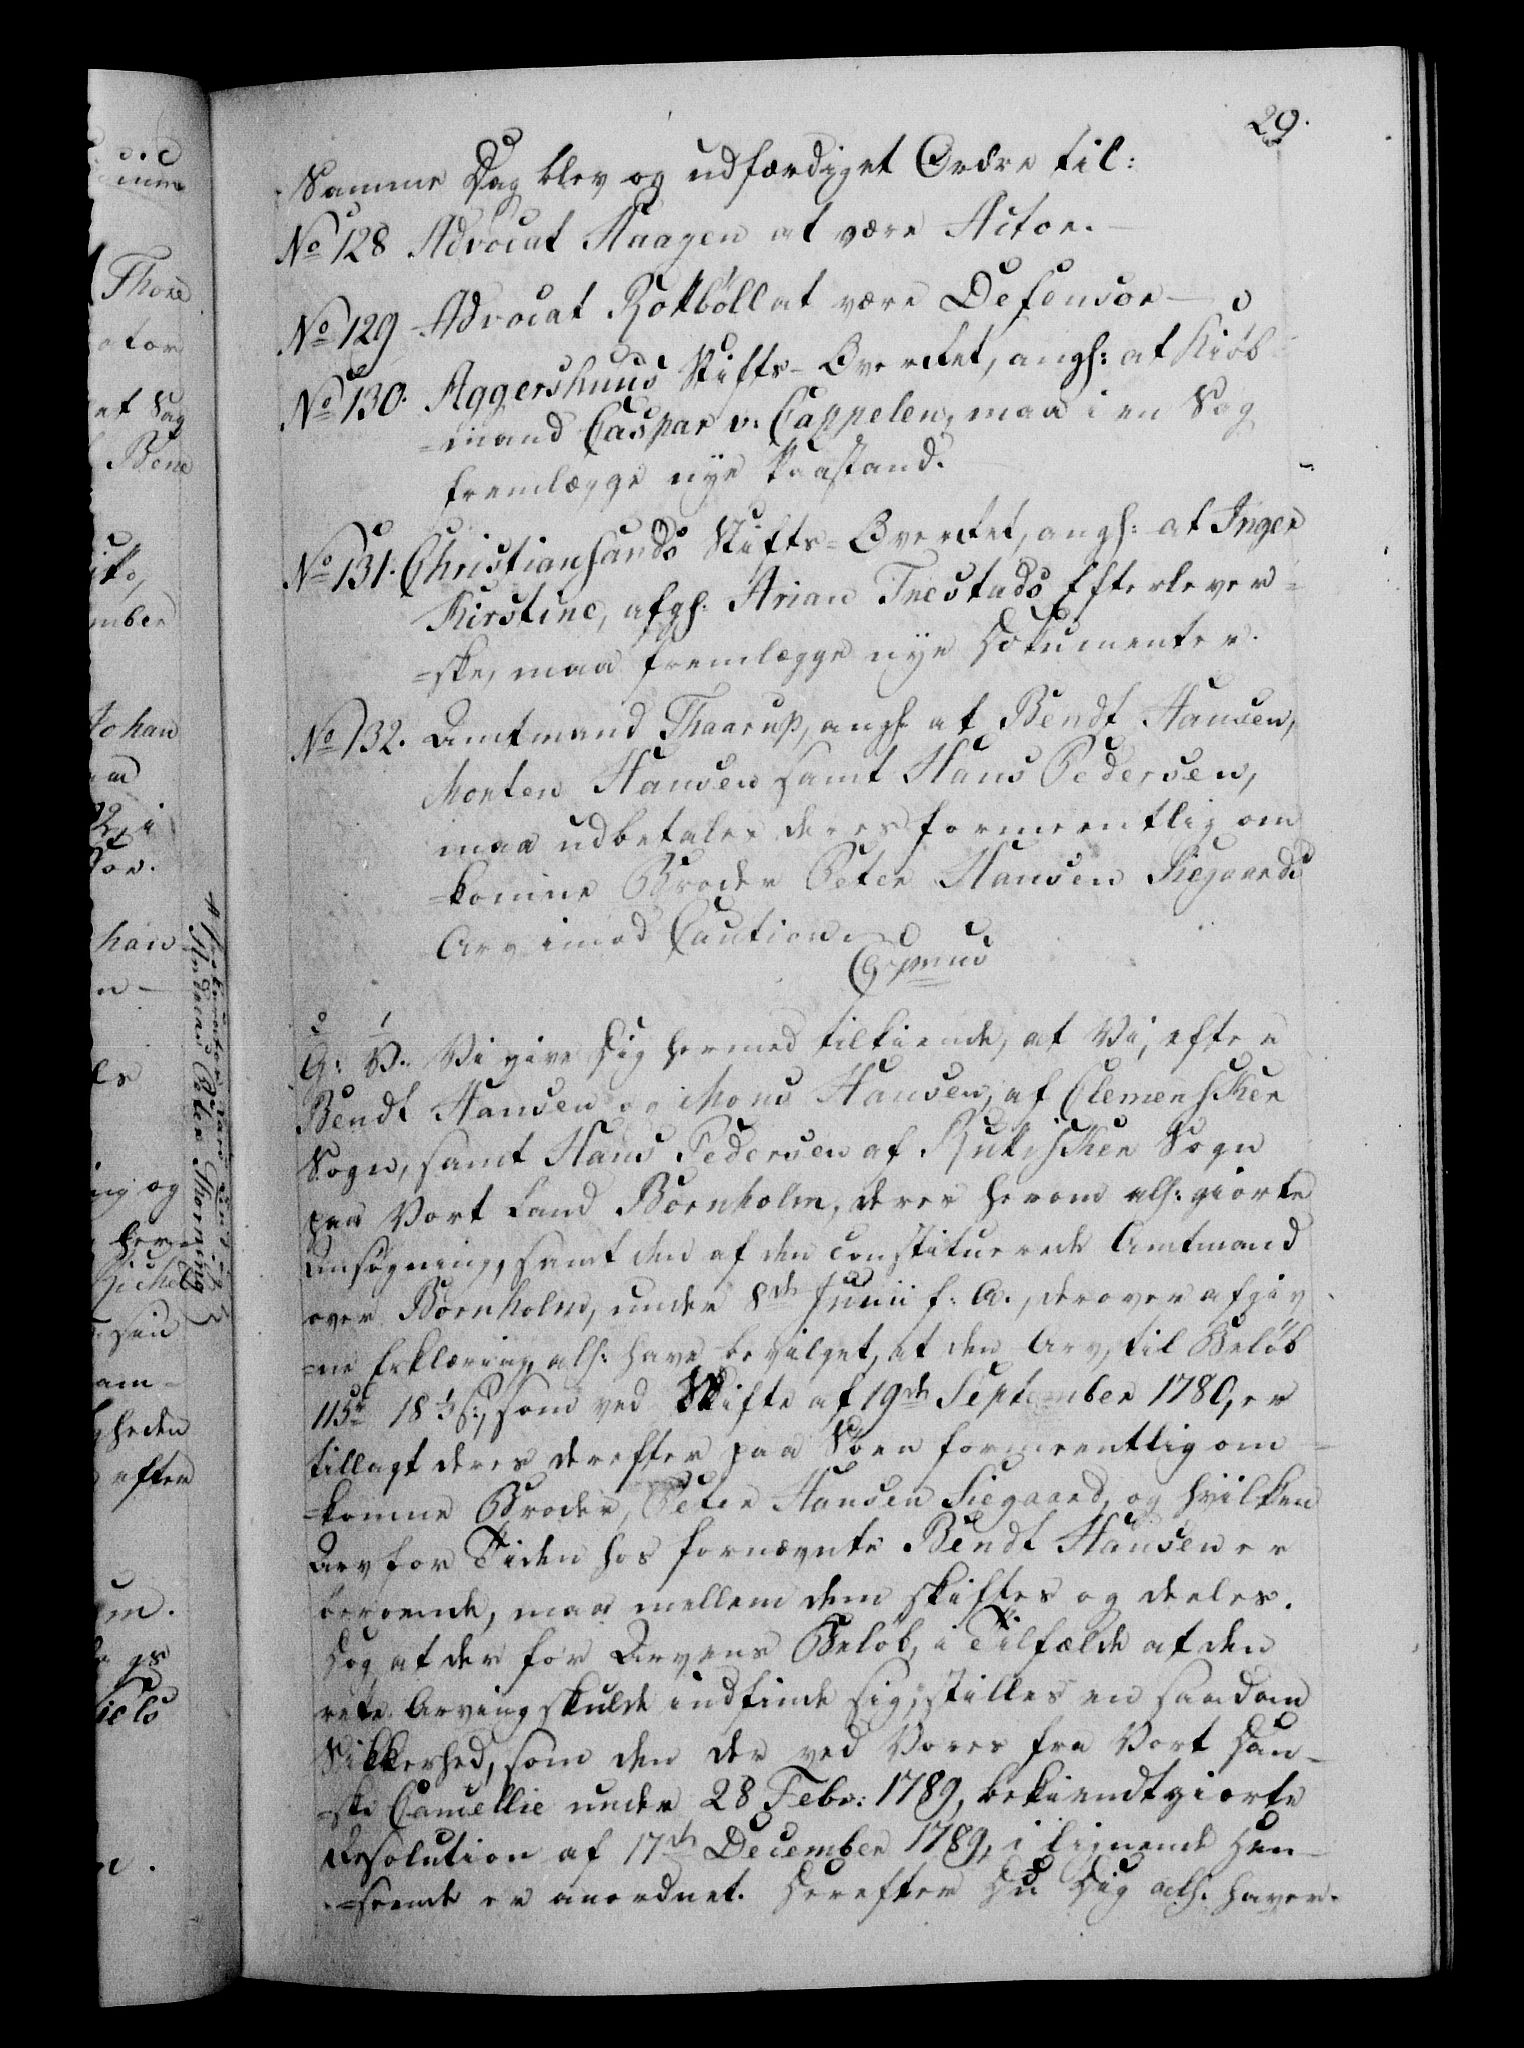 29.
Samme Dag blev og udfærdiget Ordre til:
No 128 Advocat Haagen at være Actor.
No 129 Advocat Rottbøll at være Defensor
No 130. Aggershuus Stifts-Overrttet, angl: at Kiøb
=mand Caspar v: Cappelen, maa i en Sag
fremlægge nye Paastand.
No 131. Christiansands Stifts-Overrttet, angl: at Inger
Kirstine, afgl: Arian Tnestads Efterlever=
=ske, maa fremlægge nye Documenter.
No 132. Amtmand Thaarup, angl: at Bendt Hansen,
Morten Hansen samt Hans Pedersen,
maa udbetales deres formeentlig om
=komne Broder Peter Hansen Siegaards
Arv imod Caution.
Gr. Vi give Dig hermed tilkiende, at Vi, efter
Bendt Hansen og Mons Hansen, af Clemenskier
Sogn, samt Hans Pedersen af Rutzskier Sogn
paa Vort Land Bornholm, deres herom alh: giorte
Ansøgning, samt den af den constituerede Amtmand
over Bornholm, under 8de Junii f: A., derover afgiv
=ne Erklæring, alh: have bevilget, at den Arv, til Beløb
115 r 18 1/2 s:, som ved Skifte af 19de September 1780, er
tillagt deres derefter paa Søen formeentlig om=
=komne Broder, Peter Hansen Siegaard, og hvilken
Arv for Tiden hos fornævnte Bendt Hansen er
beroende, maa mellem dem skiftes og deeles.
Dog at der for Arvens Beløb, i Tilfælde at den
rette Arving skulde indfinde sig, stilles en saadan
Sikkerhed, som den der ved Vores fra Vort Dan-
=ske Cancellie under 28 Febr: 1789, bekiendtgiorte
Resolution af 17de December 1789, i lignende Hen-
=seende er anordnet. Derefter Du Dig alh: haver.